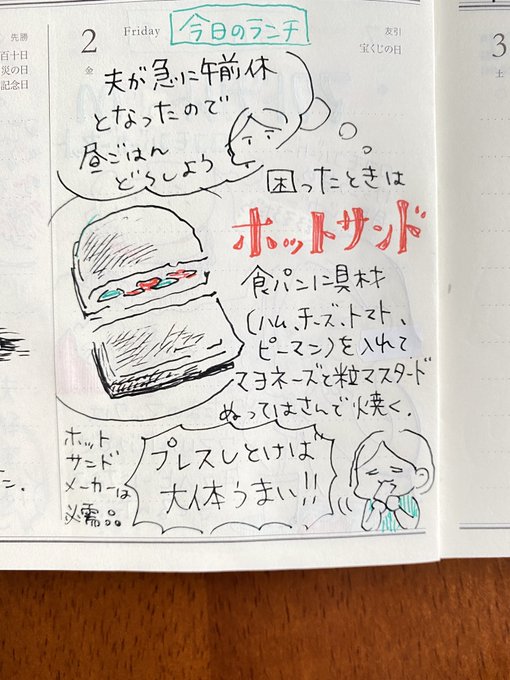 先勝
百十日
災の日
記念日
2
Friday
金
今日のランチ
友引
宝くじの日
3
土
夫が急に午前休
となったので
昼ごはん
どうしよう
困ったときは
ホットサンド
食パンに具材
(ハム、チーズ、トマト、
ピーマン)を入れて
マヨネーズと粒マスタード
ぬってはさんで焼く.
ホット
サンド
メーカーは
必需品
プレスしとけば
大体うまい!!
ン.